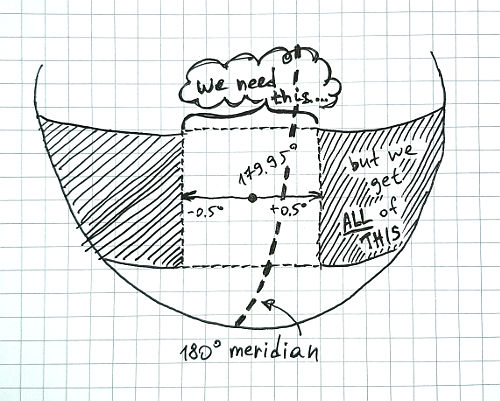 We need
this...
179.95°
-0.5°
+0.5°
but we
get
ALL of
THIS
180° meridian